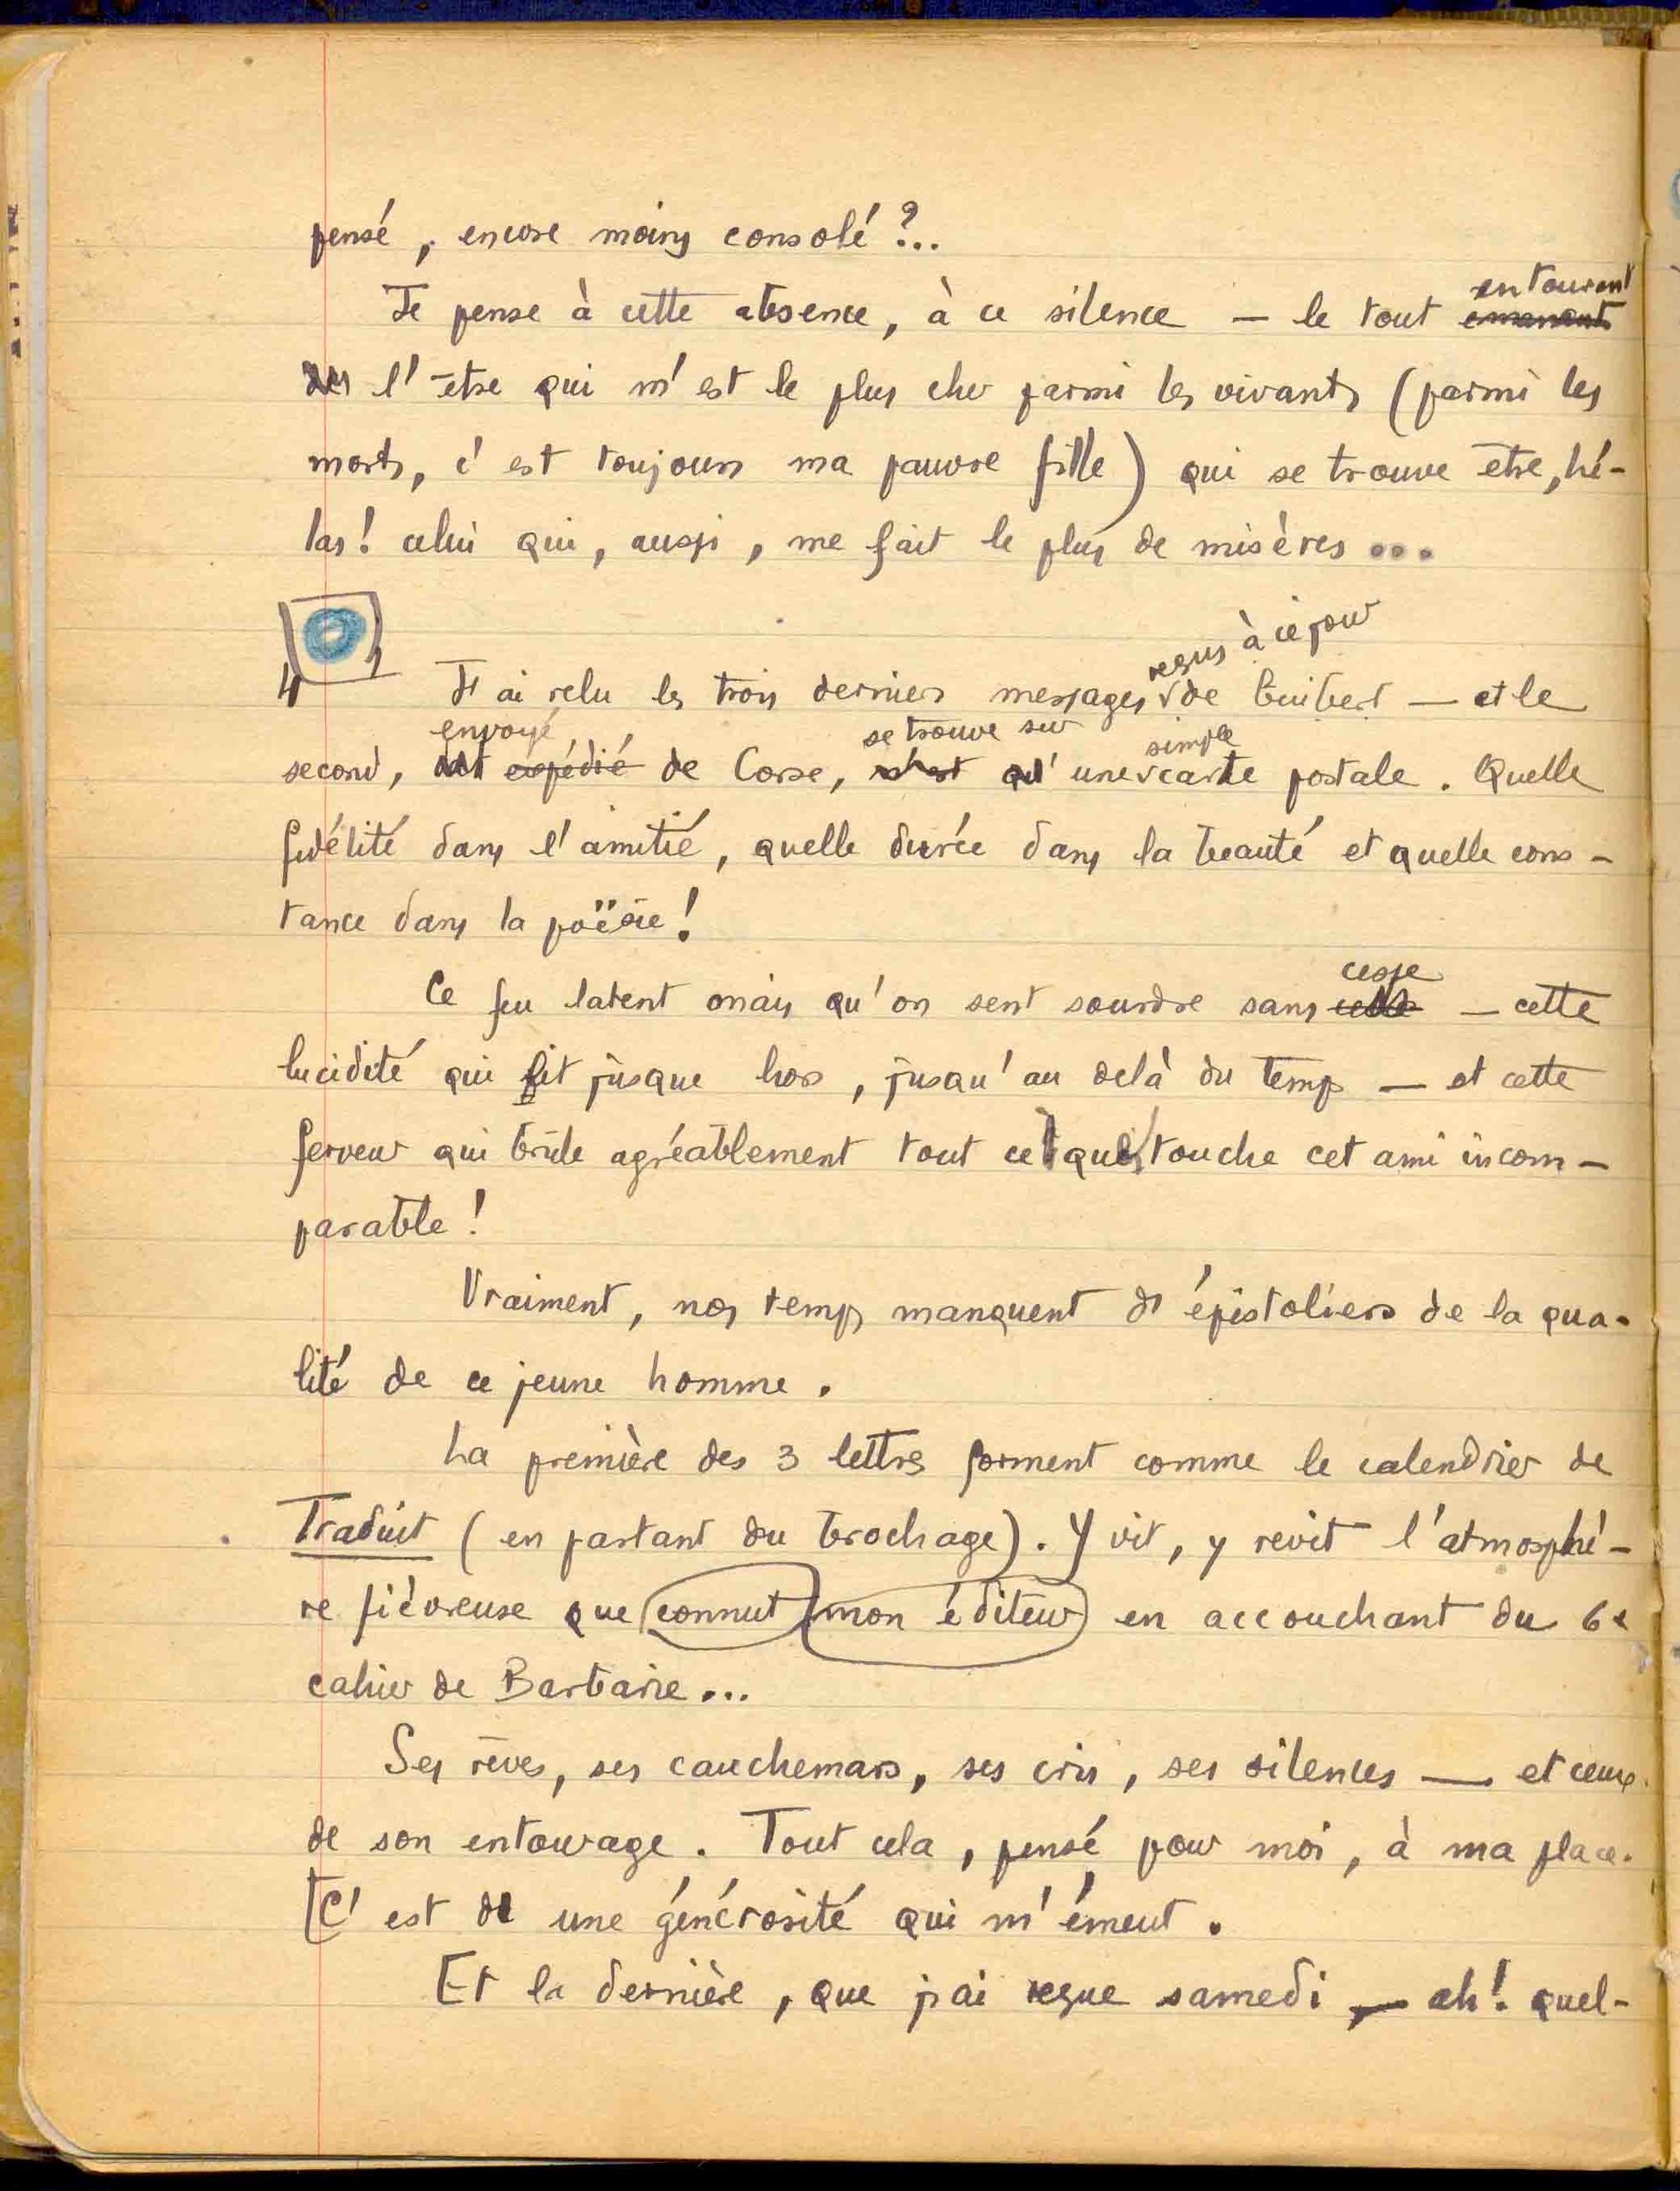 pensé, encore moins consolé ?..
Je pense à cette absence, à ce silence — le tout entourant
l'être qui m'est le plus cher parmi les vivants (parmi les
morts, c'est toujours ma pauvre fille) qui se trouve être, hé-
las! celui qui, aussi, me fait le plus de misères...
J'ai relu les trois derniers messages reçus à ce jour de Guibert — et le
second, envoyé expédié de Corse, se trouve sur n'est qu' une simple carte postale. Quelle
fidélité dans l'amitié, quelle durée dans la beauté et quelle cons-
tance dans la poësie!
Ce feu latent mais qu'on sent sourdre sans cesse — cette
lucidité qui lit jusque hors, jusqu'au delà du temps — et cette
ferveur qui brûle agréablement tout ce que touche cet ami incom-
parable!
Vraiment, nos temps manquent d'épistoliers de la qua-
lité de ce jeune homme.
La première des 3 lettres forment comme le calendrier de
Traduit (en partant du brochage). Y vit, y revit l'atmosphè-
re fiévreuse que connut mon éditeur en accouchant du 6e
cahier de Barbarie...
Ses rêves, ses cauchemars, ses cris, ses silences — et ceux
de son entourage. Tout cela, pensé pour moi, à ma place.
C'est une générosité qui m'émeut.
Et la dernière, que j'ai reçue samedi, — ah! quel-